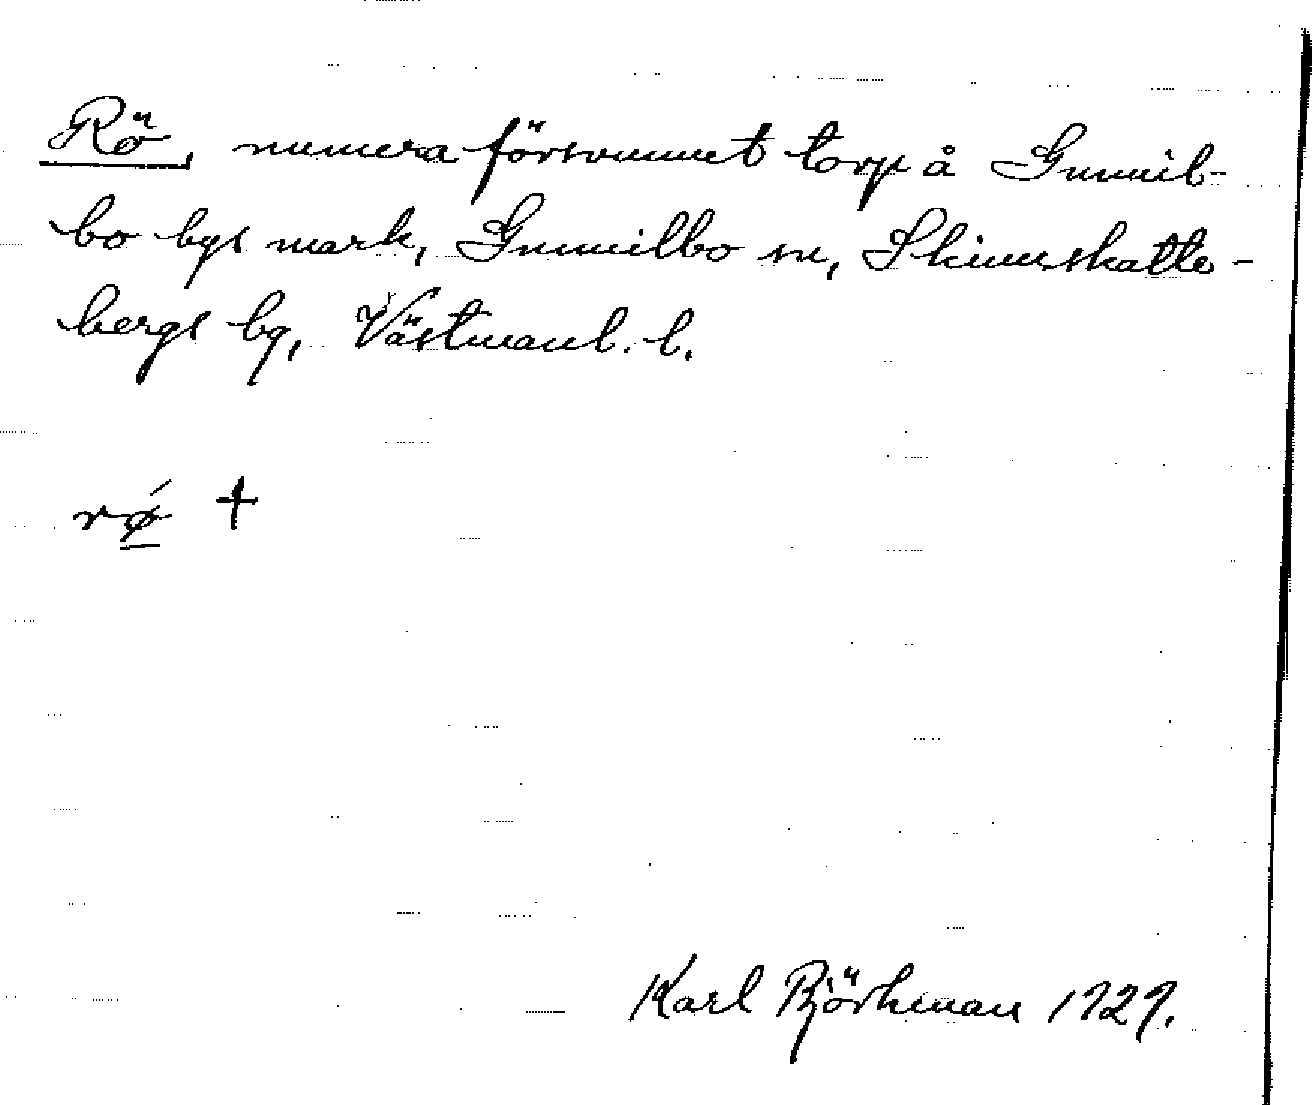 Rö, numera försvunnet torp å Gunnil-
bo bys mark, Gunnilbo sn, Skinnskatte-
bergs bg, Västmanl. l.
rǿ +
Karl Björkman 1929.